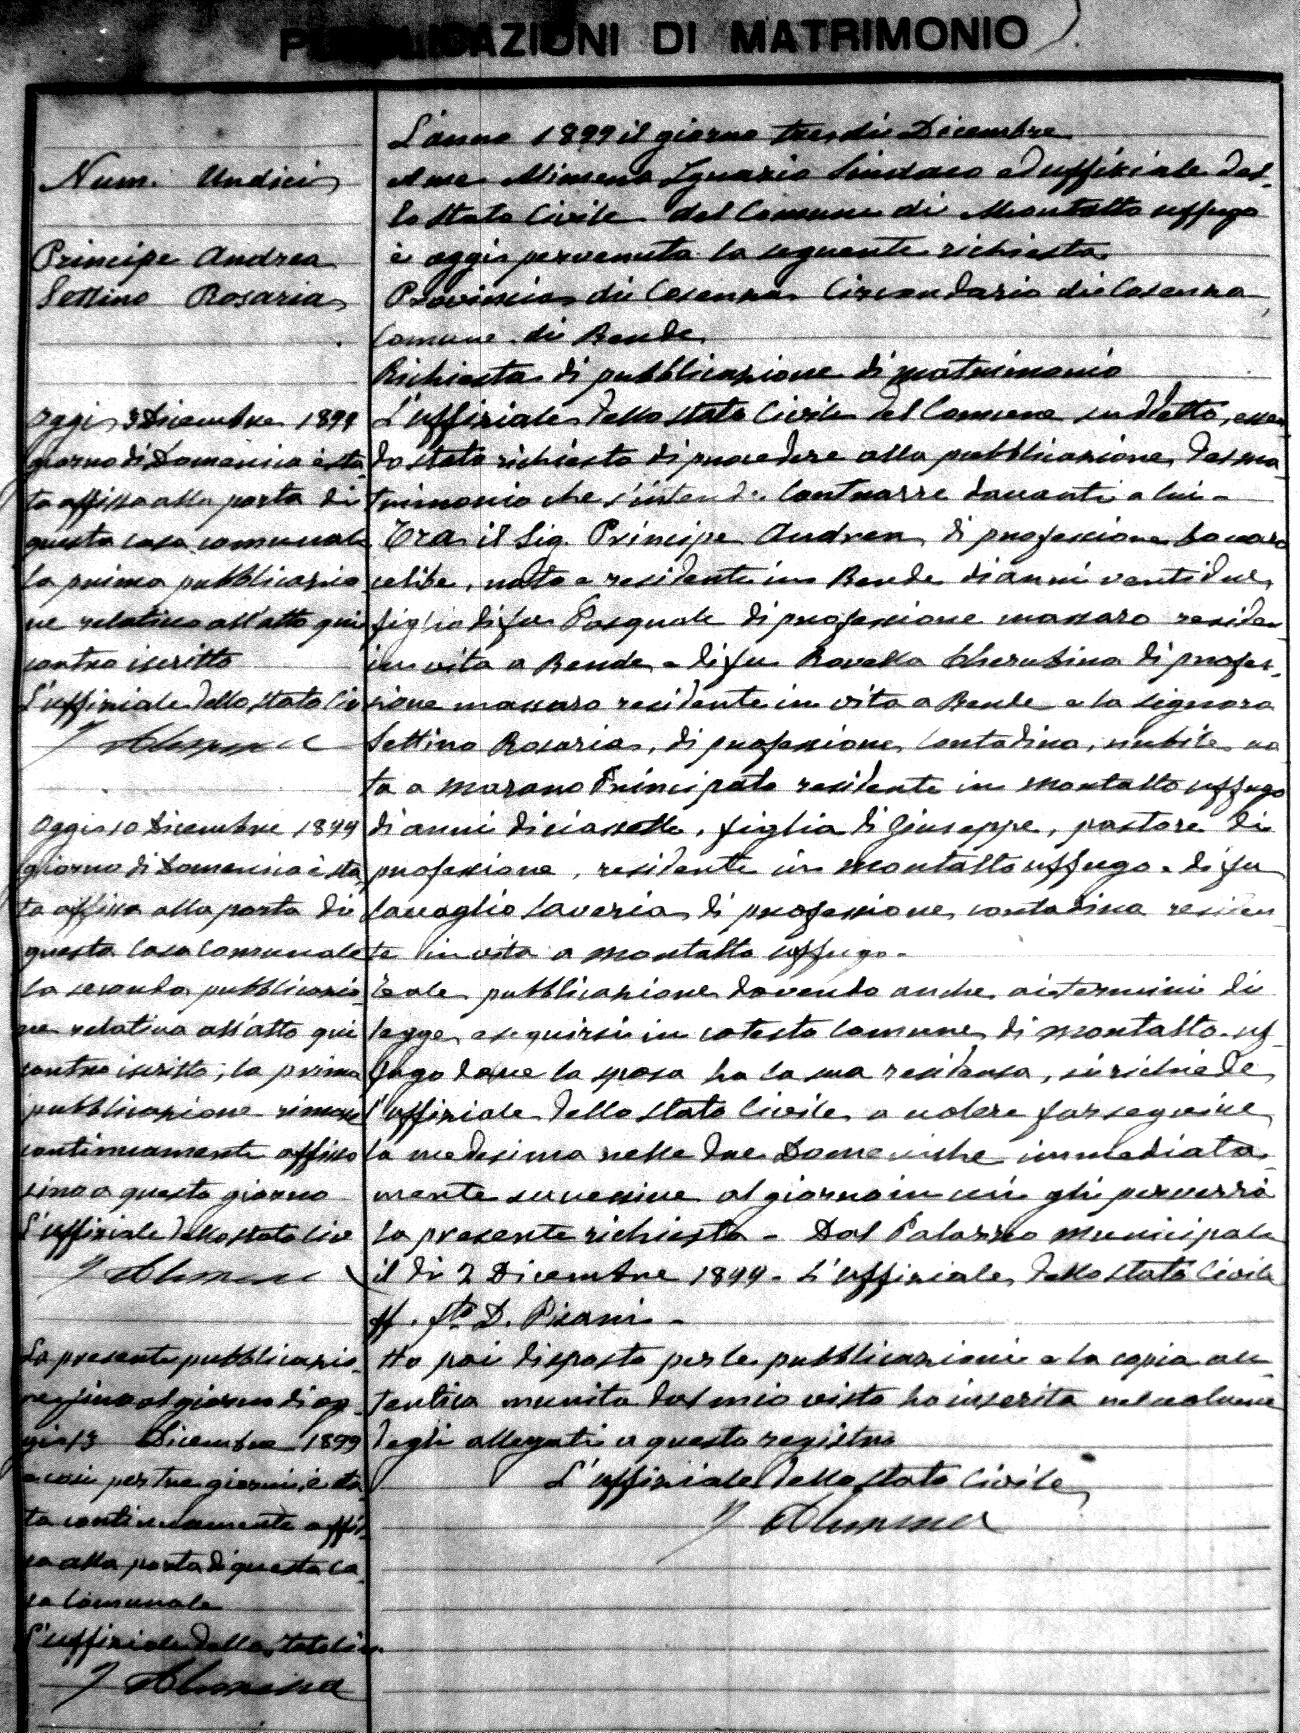 PUBBLICAZIONI DI MATRIMONIO
Num. Undici
Principe Andrea
Settino Rosaria
Oggi 3 Dicembre 1899
giorno di Domenica è sta
ta affissa alla porta di
questa casa comunale
la prima pubblicazio
ne relativa all'atto qui
contro iscritto
L'uffiziale dello stato Civ
Oggi 10 Dicembre 1899
giorno di Domenica è sta
ta affissa alla porta di
questa Casa Comunale
la seconda pubblicazio
ne relativa all'atto qui
contro iscritto; la prima
pubblicazione rimase
continuamente affissa
sino a questo giorno
L'uffiziale dello stato Civ
La presente pubblicazio
ne fino al giorno di og-
gi 13 Dicembre 1899
e così per tre giorni, è sta
ta continuamente affis
sa alla porta di questa ca
sa Comunale
L'uffiziale dello stato Civ
L'anno 1899 il giorno tre di Dicembre
A me Alimena Ignazio Sindaco ed uffiziale del-
lo stato Civile del Comune di Montalto uffugo
è oggi pervenuta la seguente richiesta
Provincia di Cosenza Circondario di Cosenza
Comune di Rende
Richiesta di pubblicazione di matrimonio
L'uffiziale dello stato Civile del Comune suddetto, essen
do stato richiesto di procedere alla pubblicazione del ma
trimonio che s'intende Contrarre davanti a lui -
Tra il Sig. Principe Andrea di professione
celibe, nato e residente in Rende di anni ventidue
figlio di fu Pasquale di professione massaro residen
in vita a Rende e di fu Ravella Cherubina di profes-
sione massara residente in vita a Rende e la signora
Settino Rosaria, di professione Contadina, nubile na
ta a Marano Principato residente in Montalto uffugo
di anni diciassette, figlia di Giuseppe, pastore di
professione, residente in Montalto uffugo e di fu
Saveria di professione contadina residen
te in vita a Montalto uffugo -
Tale pubblicazione dovendo anche ai termini di
legge eseguirsi in cotesto Comune di Montalto uf-
fugo dove la sposa ha la sua residenza, si richiede
l'uffiziale dello stato Civile a volere far seguire
la medesima nelle due Domeniche immediata-
mente successive al giorno in cui gli perverrà
la presente richiesta - Dal Palazzo Municipale
il dì 2 Dicembre 1899 - L'uffiziale dello stato Civile
ff. fto D. Pisani -
Ho poi disposto per le pubblicazioni e la copia au
tentica munita dal mio visto ho inserita nel volume
degli allegati a questo registro
L'uffiziale dello stato Civile
I Alimena